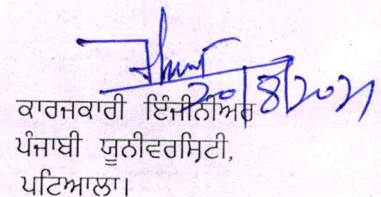 20/8/2021
ਕਾਰਜਕਾਰੀ ਇੰਜੀਨੀਅਰ
ਪੰਜਾਬੀ ਯੂਨੀਵਰਸਿਟੀ,
ਪਟਿਆਲਾ।